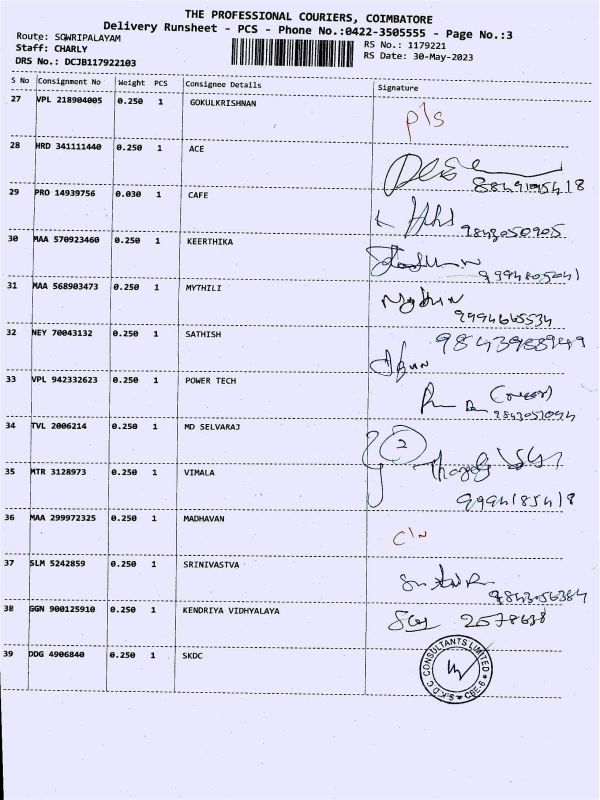 THE PROFESSIONAL COURIERS, COIMBATORE
Delivery Runsheet - PCS - Phone No.:0422-3505555 - Page No.:3
Route: SOWRIPALAYAM
RS No.: 1179221
Staff: CHARLY
RS Date: 30-May-2023
DRS No.: DCJB117922103
S No Consignment No Weight PCS Consignee Details Signature
27 VPL 218904005 0.250 1 GOKULKRISHNAN
pls
28 HRD 341111440 0.250 1 ACE
29 PRO 14939756 0.030 1 CAFE
9843050905
30 MAA 570923460 0.250 1 KEERTHIKA
31 MAA 568903473 0.250 1 MYTHILI
9994665534
32 NEY 70043132 0.250 1 SATHISH
33 VPL 942332623 0.250 1 POWER TECH
34 TVL 2006214 0.250 1 MD SELVARAJ
2
35 MTR 3128973 0.250 1 VIMALA
9994185418
36 MAA 299972325 0.250 1 MADHAVAN
37 SLM 5242859 0.250 1 SRINIVASTVA
9843056384
38 GGN 900125910 0.250 1 KENDRIYA VIDHYALAYA
39 DDG 4906840 0.250 1 SKDC
S.K.D.C. CONSULTANTS LIMITED
CBE-6